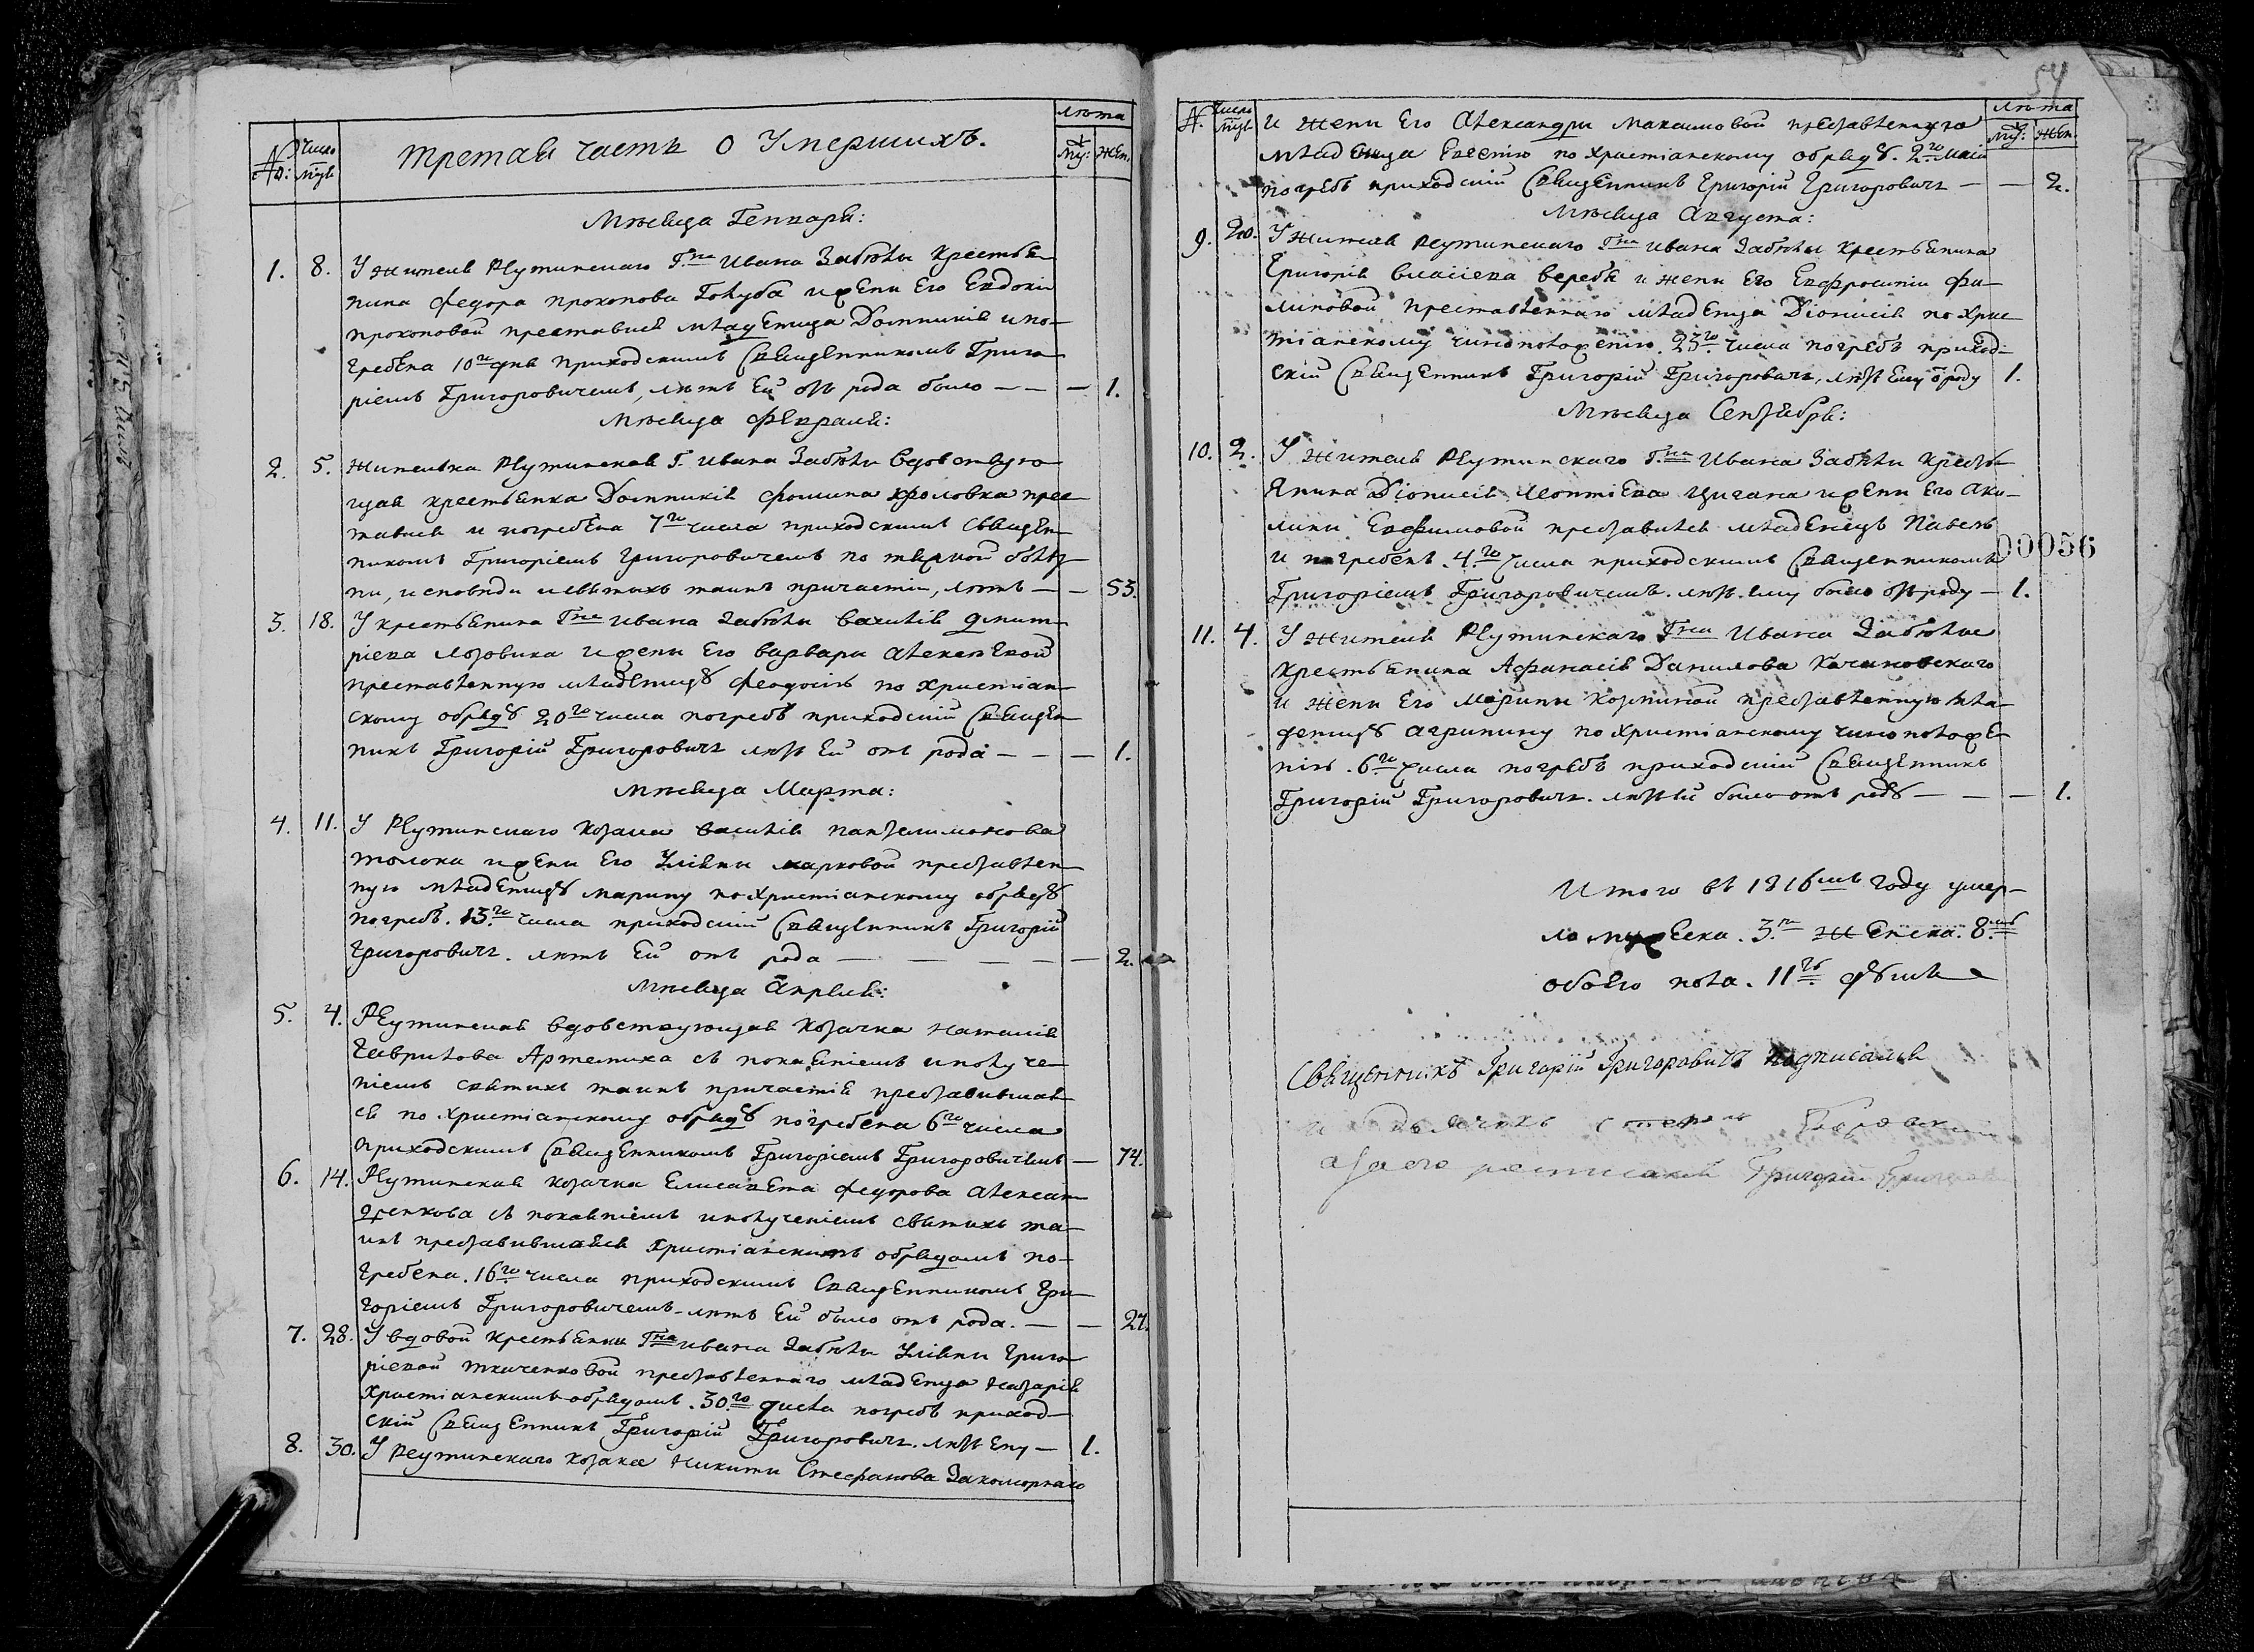 №: Число муж Третая часть о Умершихъ. лѣта муж: жен.
Мѣсяца Генваря:
1. 8. У жителя Реутинскаго Гна Ивана Забѣлы крестья
нина Федора Прокопова Голуба и жени Его Евдокіи
Прокоповой преставися младеница Домникія и по-
гребена 10го дня приходскимъ Священникомъ Григо
ріемъ Григоровичемъ, лѣтъ Ей отъ рода было — — — 1.
Мѣсяца Февраля:
2. 5. Жителька Реутинская Г. Ивана Забѣлы вдовствую
щая крестьянка Домникія Фомина Фроловка прес
тавися и погребена 7го числа приходскимъ Священ
никомъ Григоріемъ Григоровичемъ по
ни, исповѣди и святихъ таинъ причастіи, лѣтъ — — 53.
3. 18. У крестьянина Гна Ивана Забѣлы Василія Дмит
ріева Лозовика и жени Его Варвари Алексѣевой
преставленную младеницу Феодосію по христіан
скому обряду 20го числа погребъ приходскій Священ
никъ Григорій Григоровичъ лѣтъ Ей отъ рода — — — 1.
Мѣсяца Марта:
4. 11. У Реутинскаго козака Василія Пантелимонова
Толока и жени Его Уліяни Марковой преставлен
ную младеницу Марину по христіанскому обряду
погребъ. 13го числа приходскій Священникъ Григорій
Григоровичъ. лѣтъ Ей отъ рода — — — — — 2.
Мѣсяца Апрѣля:
5. 4. Реутинская вдовствующая козачка Наталія
Гаврилова Артемиха съ покаяніемъ и получе
ніемъ святихъ таинъ причастія преставившая
ся по христіанскому обряду погребена 6го числа
приходскимъ Священникомъ Григоріемъ Григоровичемъ — 74.
6. 14. Реутинская козачка Елисавета Федорова Алексан
дренкова съ покаяніемъ и полученіемъ святихъ та
инъ преставившаяся христіанскимъ обрядомъ по-
гребена. 16го числа приходскимъ Священникомъ Гри
горіемъ Григоровичемъ - лѣтъ Ей было отъ рода. — — 27.
7. 28. У вдовой крестьянки Гна Ивана Забѣлы Уліяни Григо
ріевой Ткаченковой преставленнаго младенца Назарія
христіанскимъ обрядомъ. 30го числа погребъ приход-
скій Священникъ Григорій Григоровичъ. лѣтъ Ему — 1.
8. 30. У Реутинскаго козака Никити Стефанова Закоморнаго
54
№. Число муж и жени Его Александри Максимовой преставленнаго лѣта муж: жен.
младенца по христіанскому обряду. 2го Маія
погребъ приходскій Священникъ Григорій Григоровичъ — — 2.
Мѣсяца Августа:
9. 20. У жителя Реутинскаго Гна Ивана Забѣлы крестьянина
Григорія Власіева Веребя и жени Его Евфросиніи Фи-
липовой преставленнаго младенца Діонисія по хрис
тіанскому чиноположенію. 23го числа погребъ приход-
скій Священникъ Григорій Григоровичъ, лѣтъ Ему ѿ роду 1.
Мѣсяца Сентября:
10. 2. У жителя Реутинскаго Гна Ивана Забѣлы кресть
янина Діонисія Леонтіева Цигана и жени Его Аки-
лини Евфимовой преставися младенецъ Павелъ
и погребенъ. 4.го числа приходскимъ Священникомъ
Григоріемъ Григоровичемъ. лѣтъ. ему было отъ роду — 1.
00056
11. 4. У жителя Реутинскаго Гна Ивана Забѣлы
крестьянина Афанасія Данилова Качановскаго
и жени Его Марини Козминой преставленную мла-
деницу Агрипину по христіанскому чиноположе-
нію. 6го числа погребъ приходскій Священникъ
Григорій Григоровичъ. лѣтъ Ей было отъ роду — — — 1.
Итого въ 1816мъ году умер-
ло мужеска. 3.ри женска. 8.мь
обоего пола. 11ть душъ
Священникъ Григорій Григоровичъ подписался
и Стефанъ
Григорій